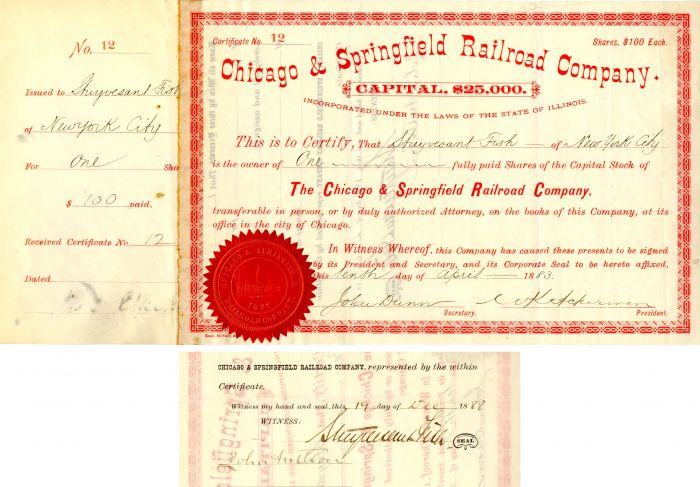 No. 12
Issued to Stuyvesant Fish
of New York City
For One Sha
$ 100 paid.
Received Certificate No. 12
Dated
Certificate No. 12
Shares, $100 Each.
Chicago & Springfield Railroad Company.
CAPITAL, $25,000.
INCORPORATED UNDER THE LAWS OF THE STATE OF ILLINOIS.
This is to Certify, That Stuyvesant Fish of New York City
is the owner of One fully paid Shares of the Capital Stock of
The Chicago & Springfield Railroad Company,
transferable in person, or by duly authorized Attorney, on the books of this Company, at its
office in the city of Chicago.
In Witness Whereof, this Company has caused these presents to be signed
by its President and Secretary, and its Corporate Seal to be hereto affixed,
this Tenth day of April 1883.
John Dunn
Secretary.
Ackerman
President.
CHICAGO & SPRINGFIELD RAILROAD COMPANY, represented by the within
Certificate.
Witness my hand and seal, this 19 day of Dec 1888
WITNESS:
Stuyvesant Fish
SEAL
John